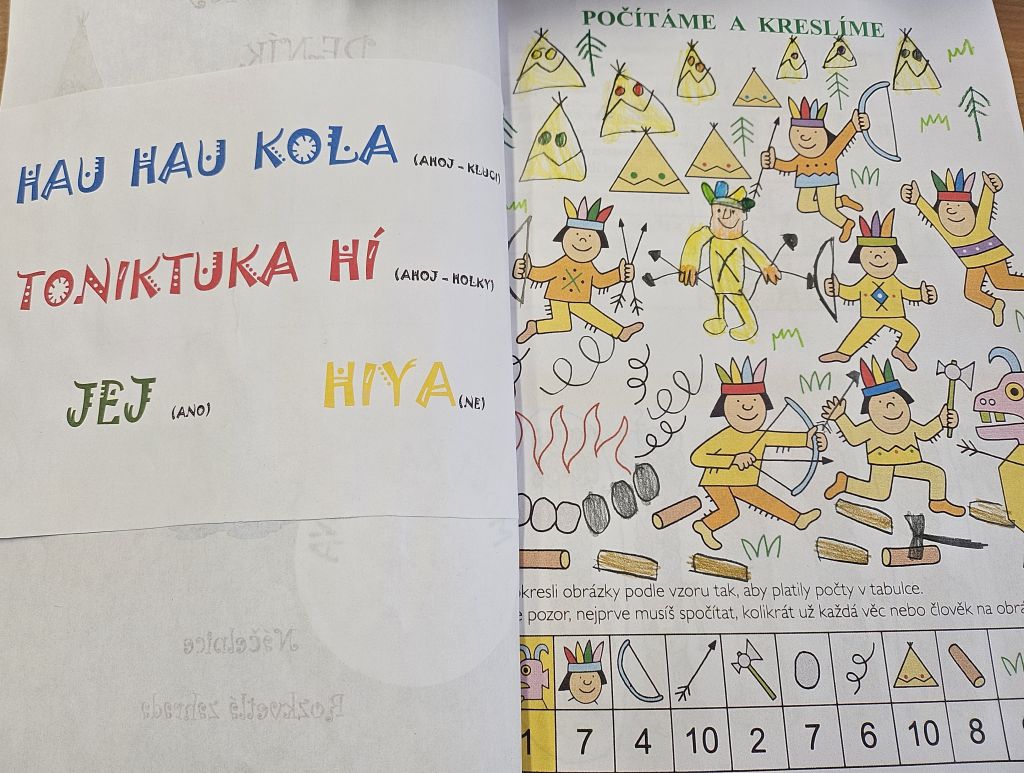 DENÍK
HAU HAU KOLA (AHOJ – KLUCI)
TONIKTUKA HÍ (AHOJ – HOLKY)
JEJ (ANO) HIYA (NE)
Náčelnice
Rozkvetlá zahrada
POČÍTÁME A KRESLÍME
obrázky podle vzoru tak, aby platily počty v tabulce.
pozor, nejprve musíš spočítat, kolikrát už každá věc nebo člověk na
1 7 4 10 2 7 6 10 8